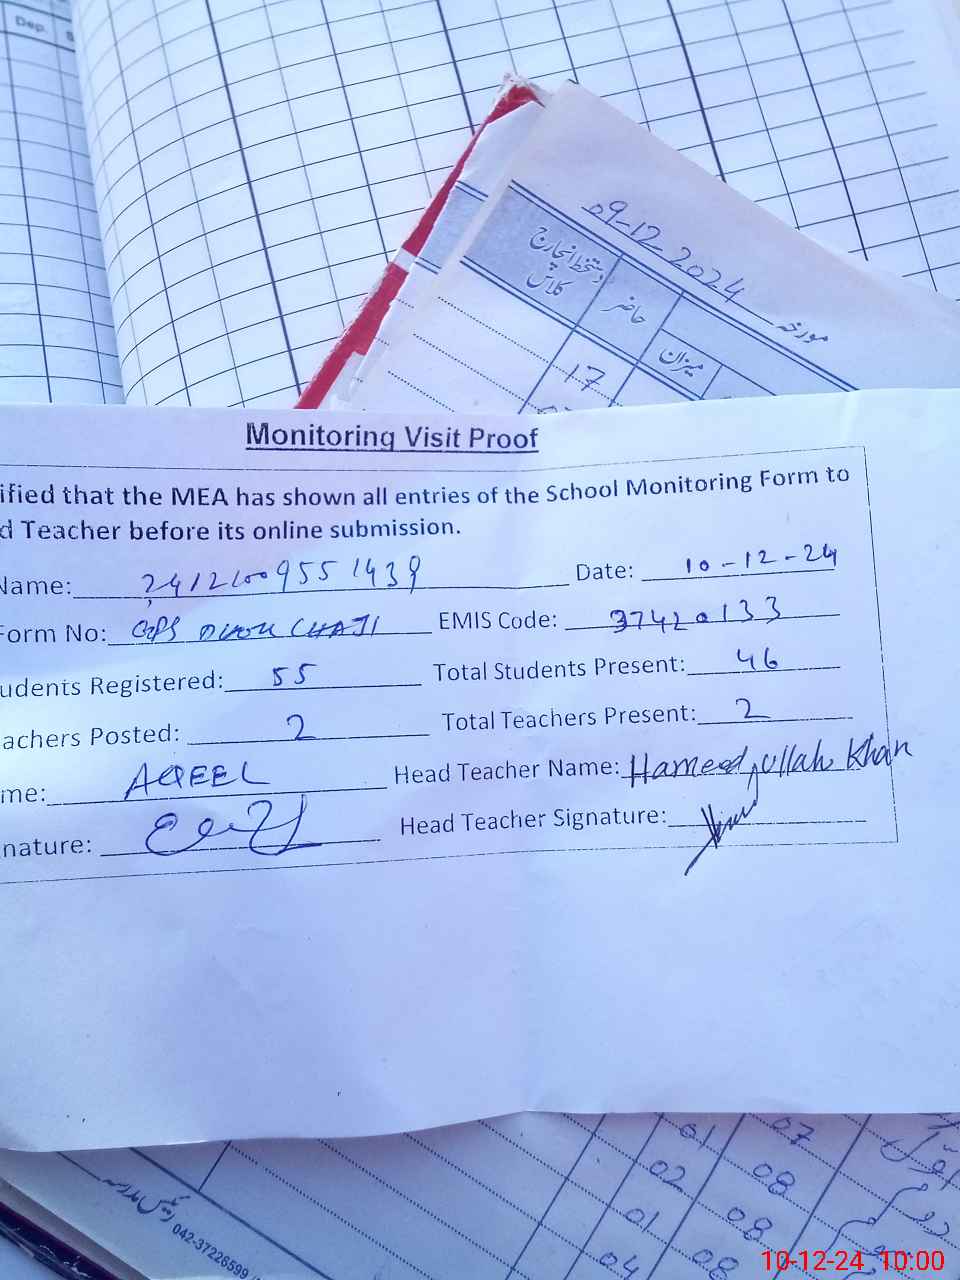 Dep.
09-12-2024 مورخہ
دستخط انچارج کلاس
حاضر
میزان
17
Monitoring Visit Proof
ified that the MEA has shown all entries of the School Monitoring Form to
d Teacher before its online submission.
Name: 24121009551439 Date: 10-12-24
Form No: GPS CHAJI EMIS Code: 37420133
udents Registered: 55 Total Students Present: 46
achers Posted: 2 Total Teachers Present: 2
me: AQEEL Head Teacher Name: Hameed ullah Khan
nature: Head Teacher Signature:
01 07
02 08
01 08
04 08
رئیس مدرسہ
042-37226599
10-12-24 10:00